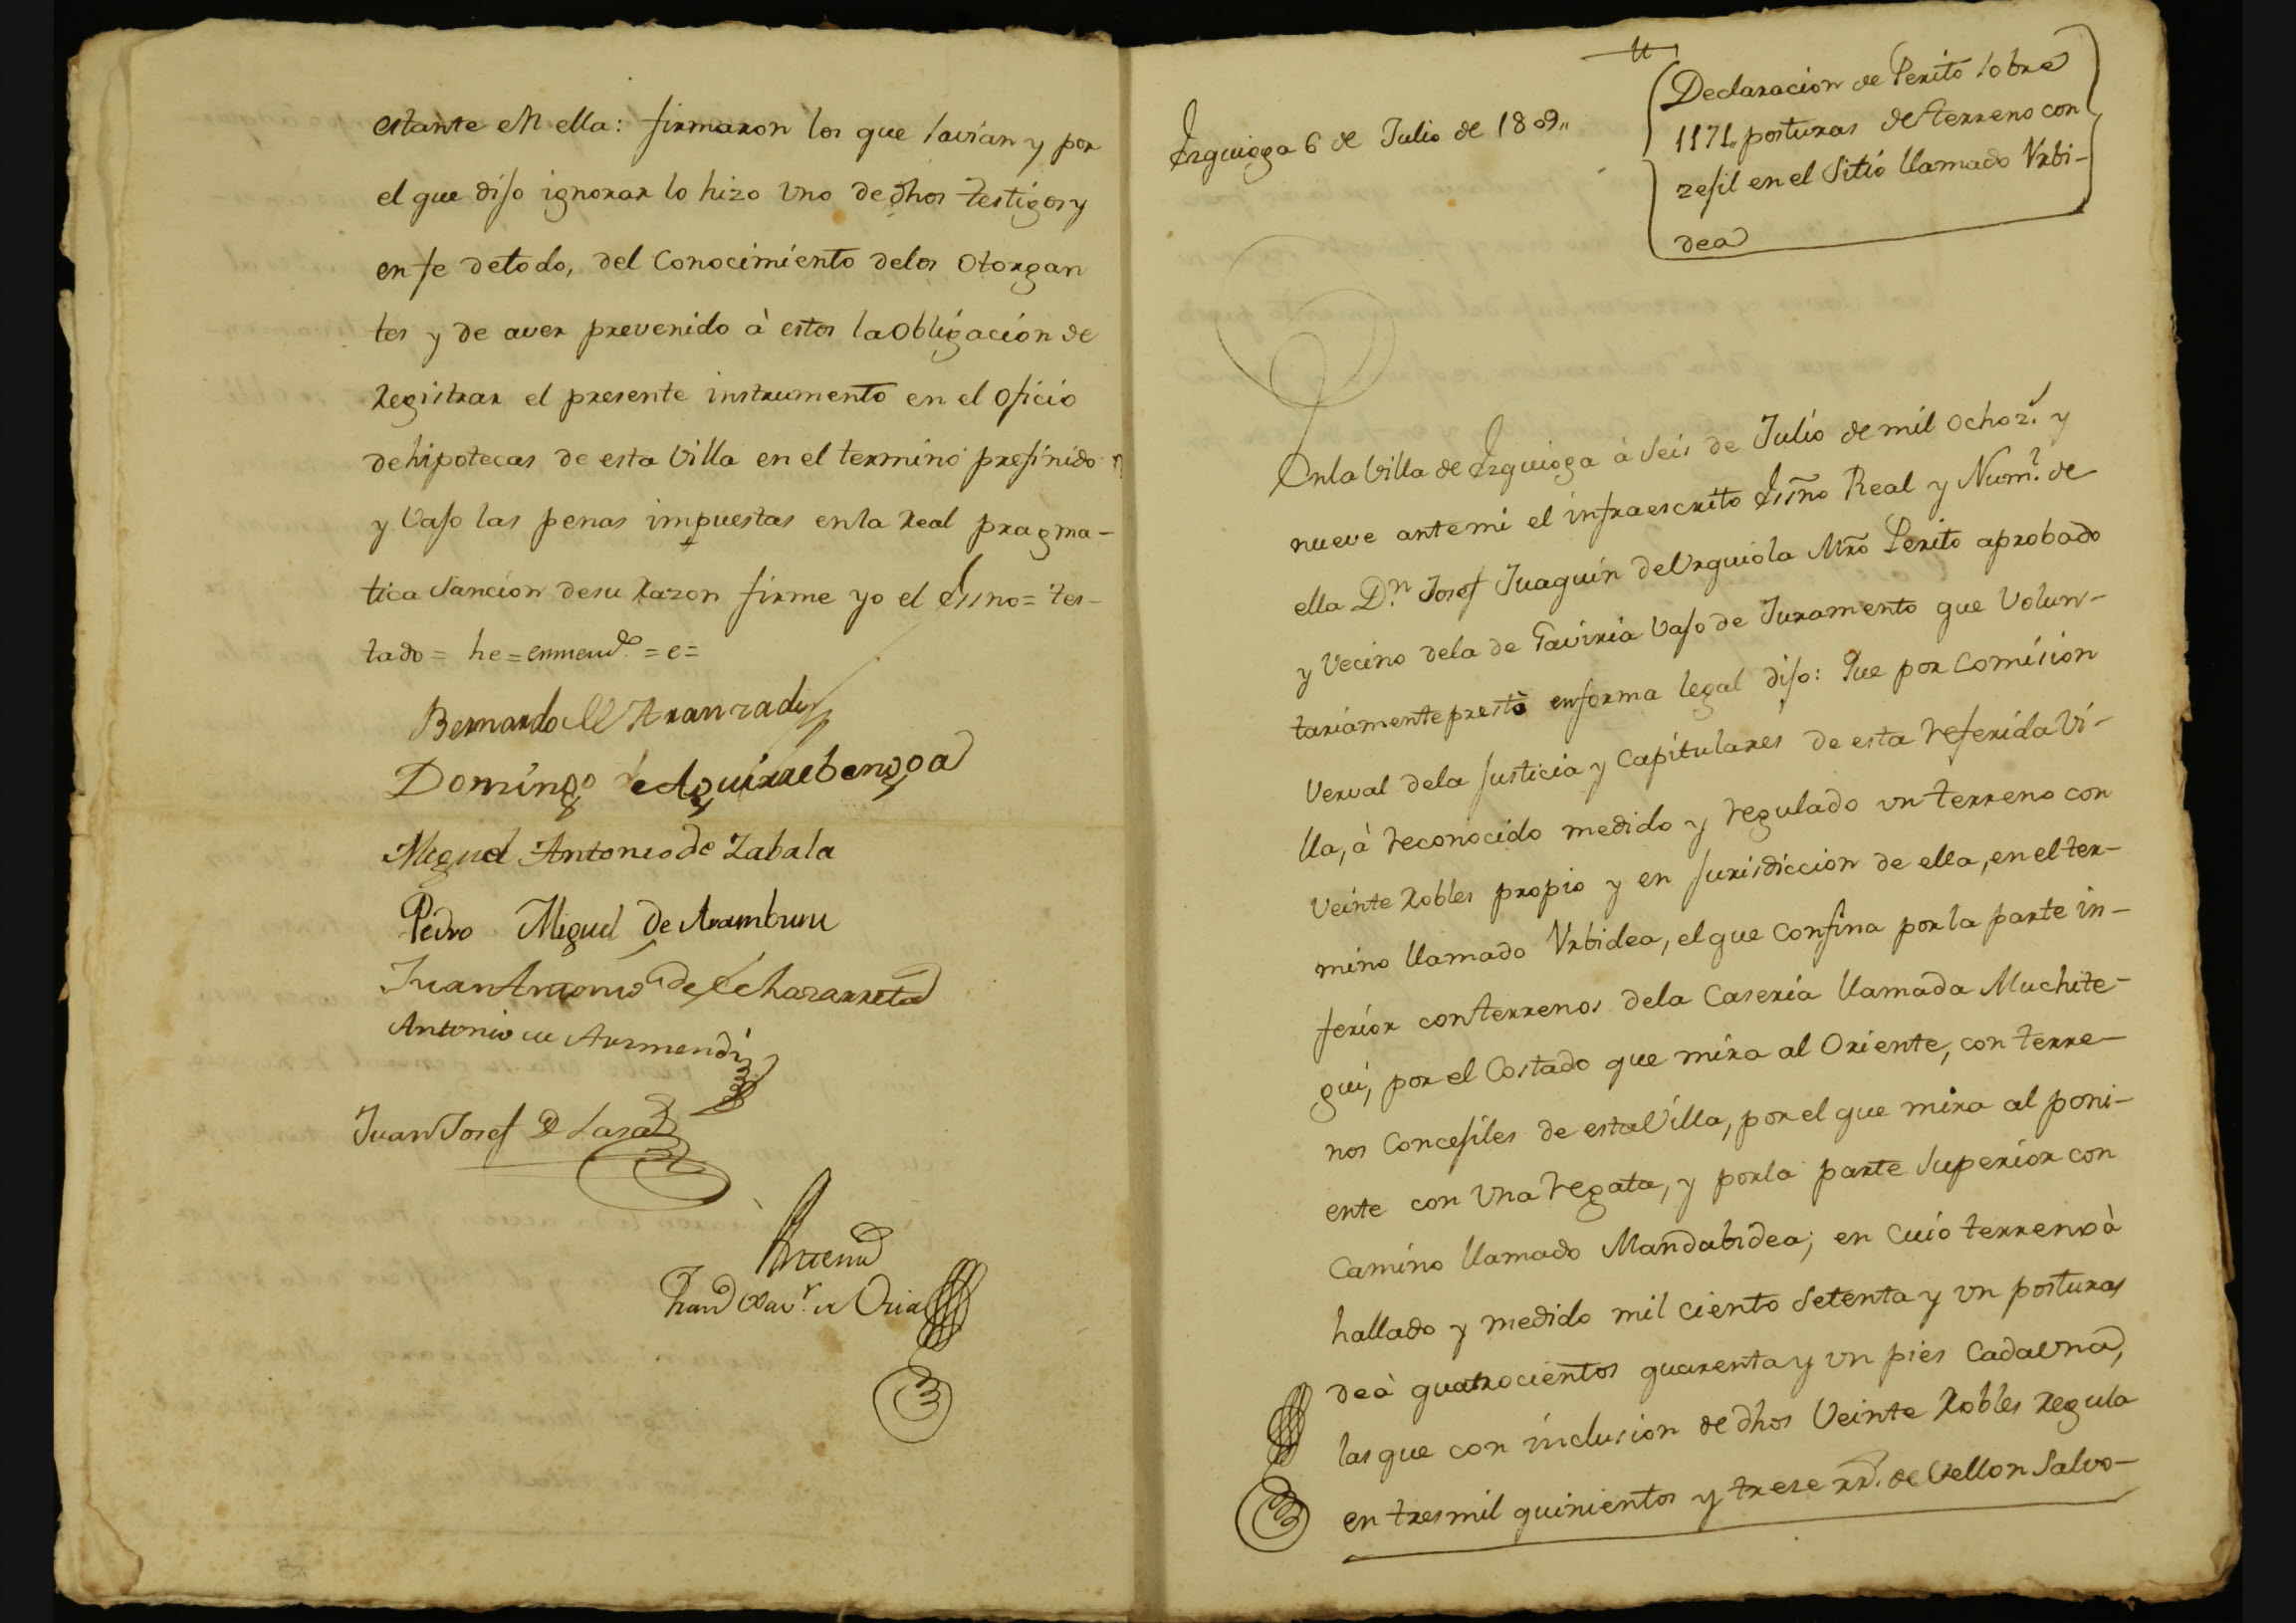 estante en ella: firmaron los que savian y por
el que dijo ignorar lo hizo uno de dhos testigos y
en fe de todo, del Conocimiento delos Otorgan
tes y de aver prevenido à estos la Obligación de
Registrar el presente instrumento en el Oficio
de hipotecas de esta Villa en el termino prefinido
y vajo las penas impuestas enla Real pragma-
tica Sanción desu Razon firme yo el Essno= tes-
tado= he= enmend.º = e=
Bernardo Aranzadi
Domingo de Aguirrebengoa
Miguel Antonio de Zabala
Pedro Miguel de Aramburu
Juan Antonio de Echazarreta
Antonio de Armendi
Juan Josef de Lasa
Antemi
Fran.co Xav.r de Oria
Ezquioga 6 de Julio de 1809,,
Declaracion de Perito sobre
1171,, posturas de terreno con
zejil en el Sitio llamado Vrbi-
dea
Enla Villa de Ezquioga à Seis de Julio de mil ochoz.s y
nueve ante mi el infraescrito Essño Real y Num.l de
ella D.n Josef Juaquin de Urquiola Mrõ Perito aprobado
y Vecino dela de Gaviria vajo de Juramento que Volun-
tariamente prestò en forma legal dijo: Que por Comision
Verval dela Justicia y Capitulares de esta referida Vi-
lla, à reconocido medido y regulado un terreno con
Veinte Robles propio y en Jurisdiccion de ella, en el ter-
mino llamado Vrbidea, el que Confina por la parte in-
ferior con terrenos dela Caseria llamada Muchite-
gui, por el Costado que mira al Oriente, con terre-
nos Concejiles de esta Villa, por el que mira al poni-
ente con Una regata, y por la parte Superior con
Camino llamado Mandabidea; en Cuio terreno à
hallado y medido mil ciento setenta y un posturas
de à quatrocientos quarenta y un pies Cada una,
las que con inclusion de dhos Veinte Robles Regula
en tres mil quinientos y treze rr.s de Vellon Salvo-